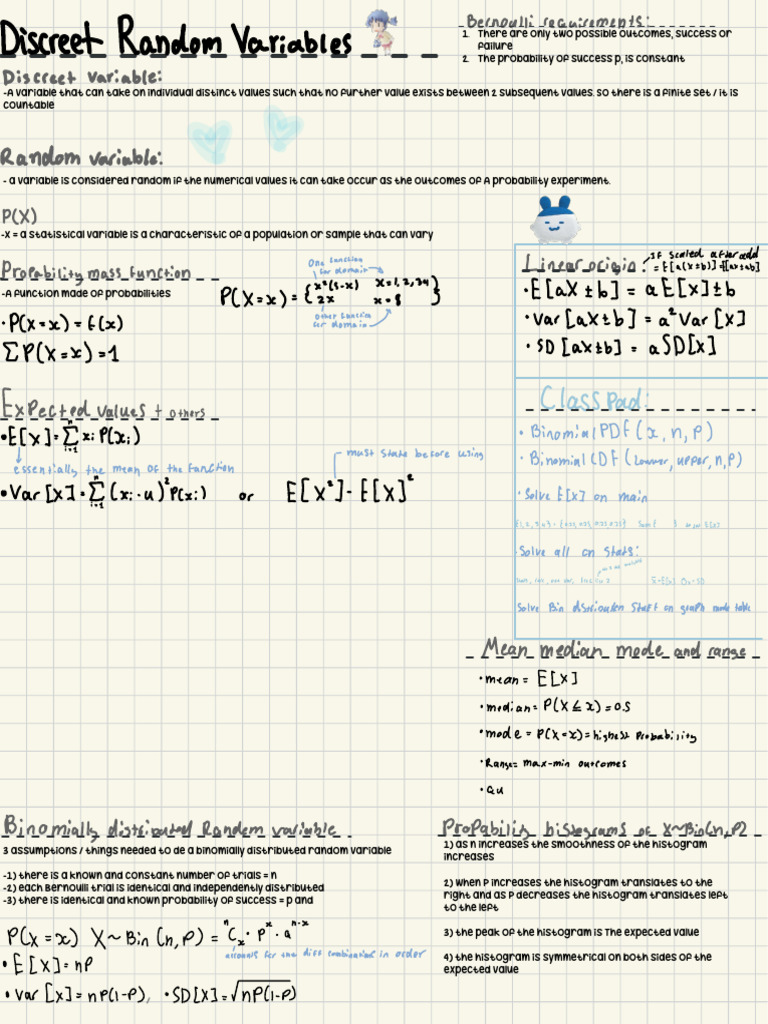 Discreet Random Variables
Bernoulli requirements:
1. There are only two possible outcomes, success or
failure
2. The probability of success p, is constant
Discreet variable:
-A variable that can take on individual distinct values such that no further value exists between 2 subsequent values. so there is a finite set / it is
countable
Random variable:
- a variable is considered random if the numerical values it can take occur as the outcomes of a probability experiment.
P(X)
-X = a statistical variable is a characteristic of a population or sample that can vary
Probability mass function
-A function made of probabilities
•P(X=x) = f(x)
ΣP(X=x)=1
One function
for domain
P(X=x) = { x²(5-x) x=1,2,3,4
2x x=8 }
other function
for domain
Linear origin:
If scaled after add
= E[a(X±b)] =E[ax±ab]
•E[aX±b] = aE[x]±b
•Var[aX±b] = a²Var[X]
•SD[aX±b] = aSD[X]
Expected values + others
•E[X]=Σⁿᵢ₌₁ xᵢ P(xᵢ)
essentially the mean of the function
must state before using
•Var[X]=Σⁿᵢ₌₁ (xᵢ-u)²P(xᵢ) or E[X²]-E[X]²
ClassPad:
• BinomialPDF(x,n,p)
• BinomialCDF(lower,upper,n,p)
•Solve E[x] on main
•Solve all on Stats:
Solve Bin on graph mode table
Mean median mode and range
•mean = E[X]
•median= P(X≤x)=0.5
•mode = P(X=x)=highest Probability
•Range= max-min outcomes
•Qu
Binomially distributed Random variable
3 assumptions / things needed to de a binomially distributed random variable
-1) there is a known and constant number of trials = n
-2) each Bernoulli trial is identical and independently distributed
-3) there is identical and known probability of success = p and
P(X=x) X~Bin(n,p) = ⁿCₓ·pˣ·qⁿ⁻ˣ
accounts for the diff combinations in order
•E[X]=np
•Var[X]=np(1-p), •SD[X]=√np(1-p)
Propability histograms of X~Bin(n,P)
1) as n increases the smoothness of the histogram
increases
2) When P increases the histogram translates to the
right and as P decreases the histogram translates left
to the left
3) the peak of the histogram is The expected value
4) the histogram is symmetrical on both sides of the
expected value